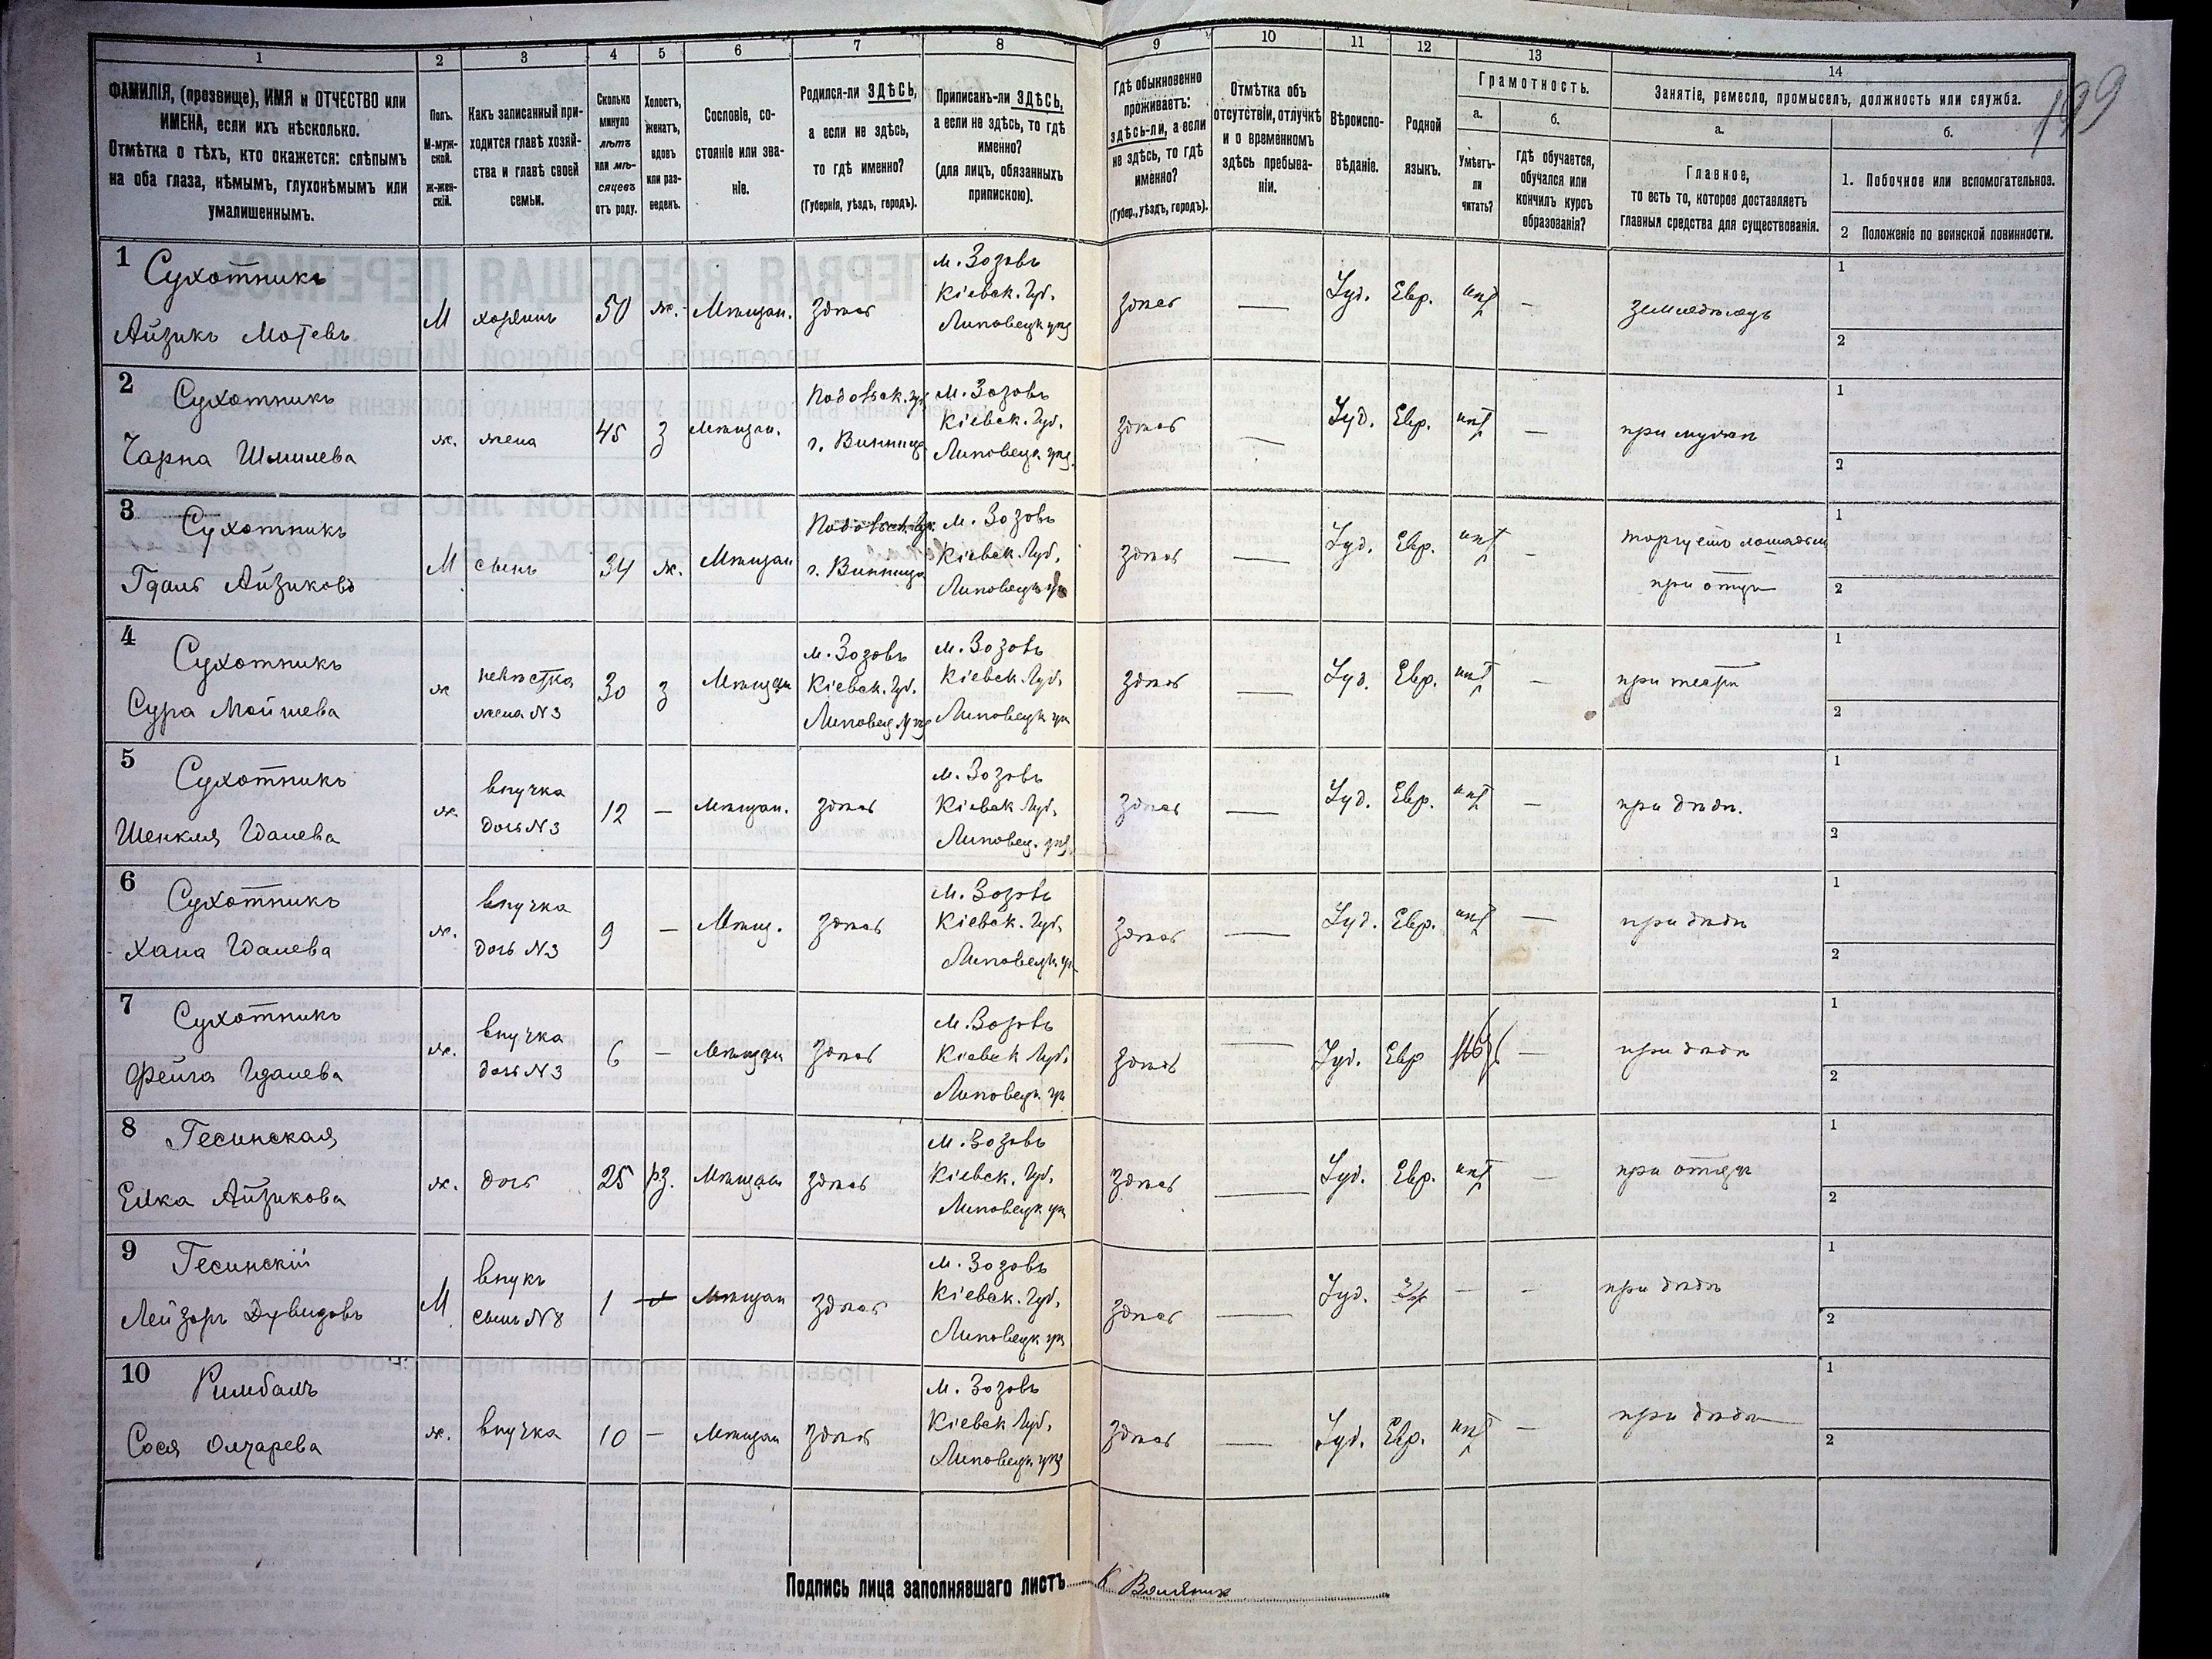 199
1 2 3 4 5 6 7 8 9 10 11 12 13 14
ФАМИЛІЯ, (прозвище), ИМЯ и ОТЧЕСТВО или
ИМЕНА, если ихъ нѣсколько.
Отмѣтка о тѣхъ, кто окажется: слѣпымъ
на оба глаза, нѣмымъ, глухонѣмымъ или
умалишеннымъ.
Полъ.
М-муж-
ской.
Ж-жен-
скій.
Какъ записанный при-
ходится главѣ хозяй-
ства и главѣ своей
семьи.
Сколько
минуло
лѣтъ
или мѣ-
сяцевъ
отъ роду.
Холостъ,
женатъ,
вдовъ
или раз-
веденъ.
Сословіе, со-
стояніе или зва-
ніе.
Родился-ли ЗДѢСЬ,
а если не здѣсь,
то гдѣ именно?
(Губернія, уѣздъ, городъ).
Приписанъ-ли ЗДѢСЬ,
а если не здѣсь, то гдѣ
именно?
(для лицъ, обязанныхъ
припискою).
Гдѣ обыкновенно
проживаетъ:
здѣсь-ли, а если
не здѣсь, то гдѣ
именно?
(Губер., уѣздъ, городъ).
Отмѣтка объ
отсутствіи, отлучкѣ
и о временномъ
здѣсь пребыва-
ніи.
Вѣроиспо-
вѣданіе.
Родной
языкъ.
Грамотность.
а.
Умѣетъ-
ли
читать?
б.
гдѣ обучается,
обучался или
кончилъ курсъ
образованія?
Занятіе, ремесло, промыселъ, должность или служба.
а.
Главное,
то есть то, которое доставляетъ
главныя средства для существованія.
б.
1. Побочное или вспомогательное.
2 Положеніе по воинской повинности.
1 Сухотникъ
Айзикъ Мотевъ
М
хозяинъ
50
ж.
Мѣщан.
здѣсь
м. Зозовъ
Кіевск. Губ.
Липовецк уѣз
здѣсь
—
Іуд.
Евр.
нѣт
—
земледѣлецъ
1
2
2 Сухотникъ
Чарна Шмилева
ж.
жена
45
з
Мѣщан.
Подольск. гу
г. Винница
м. Зозовъ
Кіевск. Губ.
Липовецк. уѣз.
здѣсь
—
Іуд.
Евр.
нѣт
—
при мужѣ
1
2
3 Сухотникъ
Гдаль Айзиковъ
М
сынъ
34
ж.
Мѣщан
г. Винница
м. Зозовъ
Кіевск. Губ.
Липовецк
здѣсь
—
Іуд.
Евр.
нѣт
—
торгуетъ лошадьми
при отцѣ
1
2
4 Сухотникъ
Сура Мойшева
ж
невѣстка
жена N 3
30
з
Мѣщан
м. Зозовъ
Кіевск. Губ.
Липовец. уѣз
м. Зозовъ
Кіевск Губ.
Липовецк уѣ
здѣсь
—
Іуд.
Евр.
нѣт
—
1
2
5 Сухотникъ
Шенкля Гдалева
ж
внучка
дочь N 3
12
—
Мѣщан.
здѣсь
м. Зозовъ
Кіевск Губ.
Липовец. уѣз
здѣсь
—
Іуд.
Евр.
нѣт
—
при дѣдѣ.
1
2
6 Сухотникъ
Хана Гдалева
ж.
внучка
дочь N3
9
—
Мѣщ.
здѣсь
м. Зозовъ
Кіевск. Губ.
Липовецк уѣ
здѣсь
—
Іуд.
Евр.
нѣт
—
при дѣдѣ
1
2
7 Сухотникъ
Фейга Гдалева
ж.
внучка
дочь N 3
6
—
Мѣщан
здѣсь
м. Зозовъ
Кіевск Губ.
Липовецк. уѣ
здѣсь
—
Іуд.
Евр
—
при дѣдѣ
1
2
8 Гесинская
Елка Айзикова
ж.
дочь
25
рз.
Мѣщан
здѣсь
м. Зозовъ
Кіевск. Губ.
Липовецк уѣ
здѣсь
—
Іуд.
Евр.
нѣт
—
при отцѣ
1
2
9 Гесинскій
Лейзоръ Дувидовъ
М
внукъ
сынъ N 8
1
Мѣщан
здѣсь
м. Зозовъ
Кіевск. Губ.
Липовецк уѣ
здѣсь
—
Іуд.
—
—
при дѣдѣ
1
2
10 Римбалъ
Сося Олчарева
ж.
внучка
10
—
Мѣщан
здѣсь
м. Зозовъ
Кіевск Губ.
Липовецк уѣз
здѣсь
—
Іуд.
Евр.
нѣт
—
при дѣдѣ
1
2
Подпись лица заполнявшаго листъ